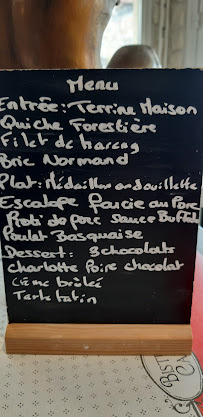 Menu
Entrée: Terrine Maison
Quiche Forestière
Filet de Hareng
Bric Normand
Plat: Médaillon andouillette
Escalope Farcie au Porc
Roti de porc Sauce Buffalo
Poulet Basquaise
Dessert: 3 chocolats
Charlotte Poire chocolat
Crème brûlée
Tarte tatin
BIST